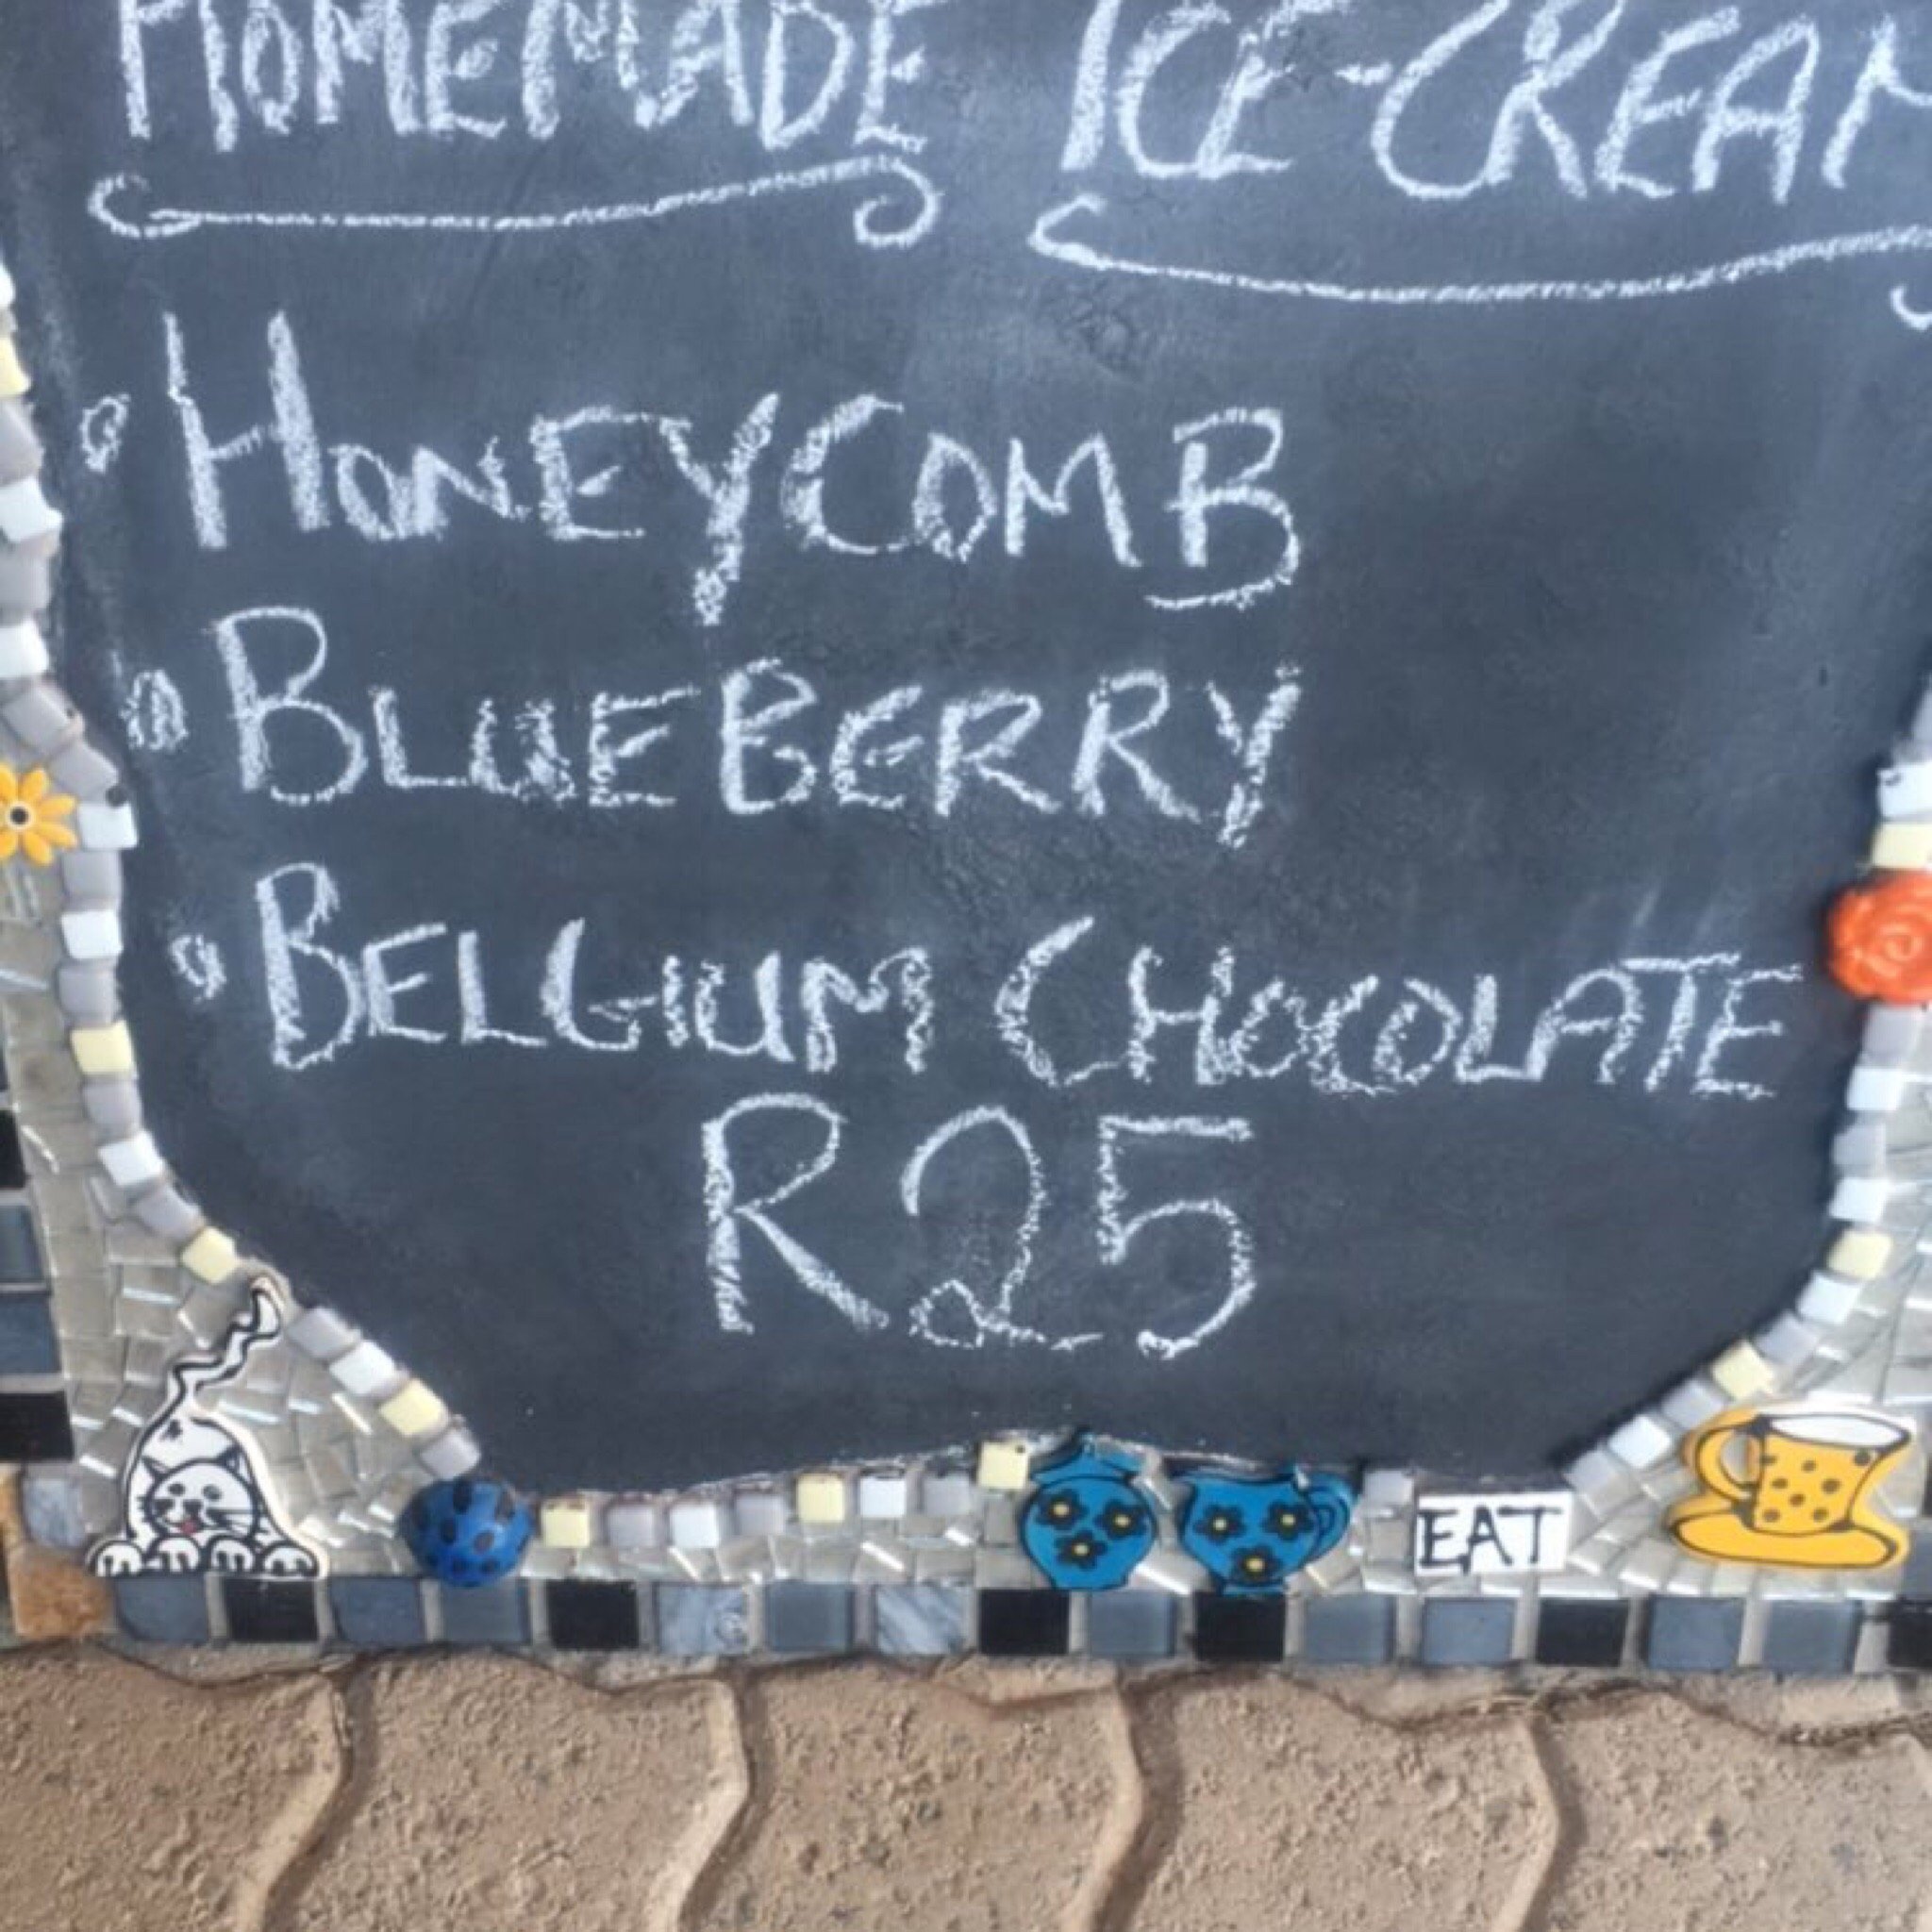 HOMEMADE ICE-CREAM
HONEYCOMB
BLUEBERRY
BELGIUM CHOCOLATE
R25
EAT